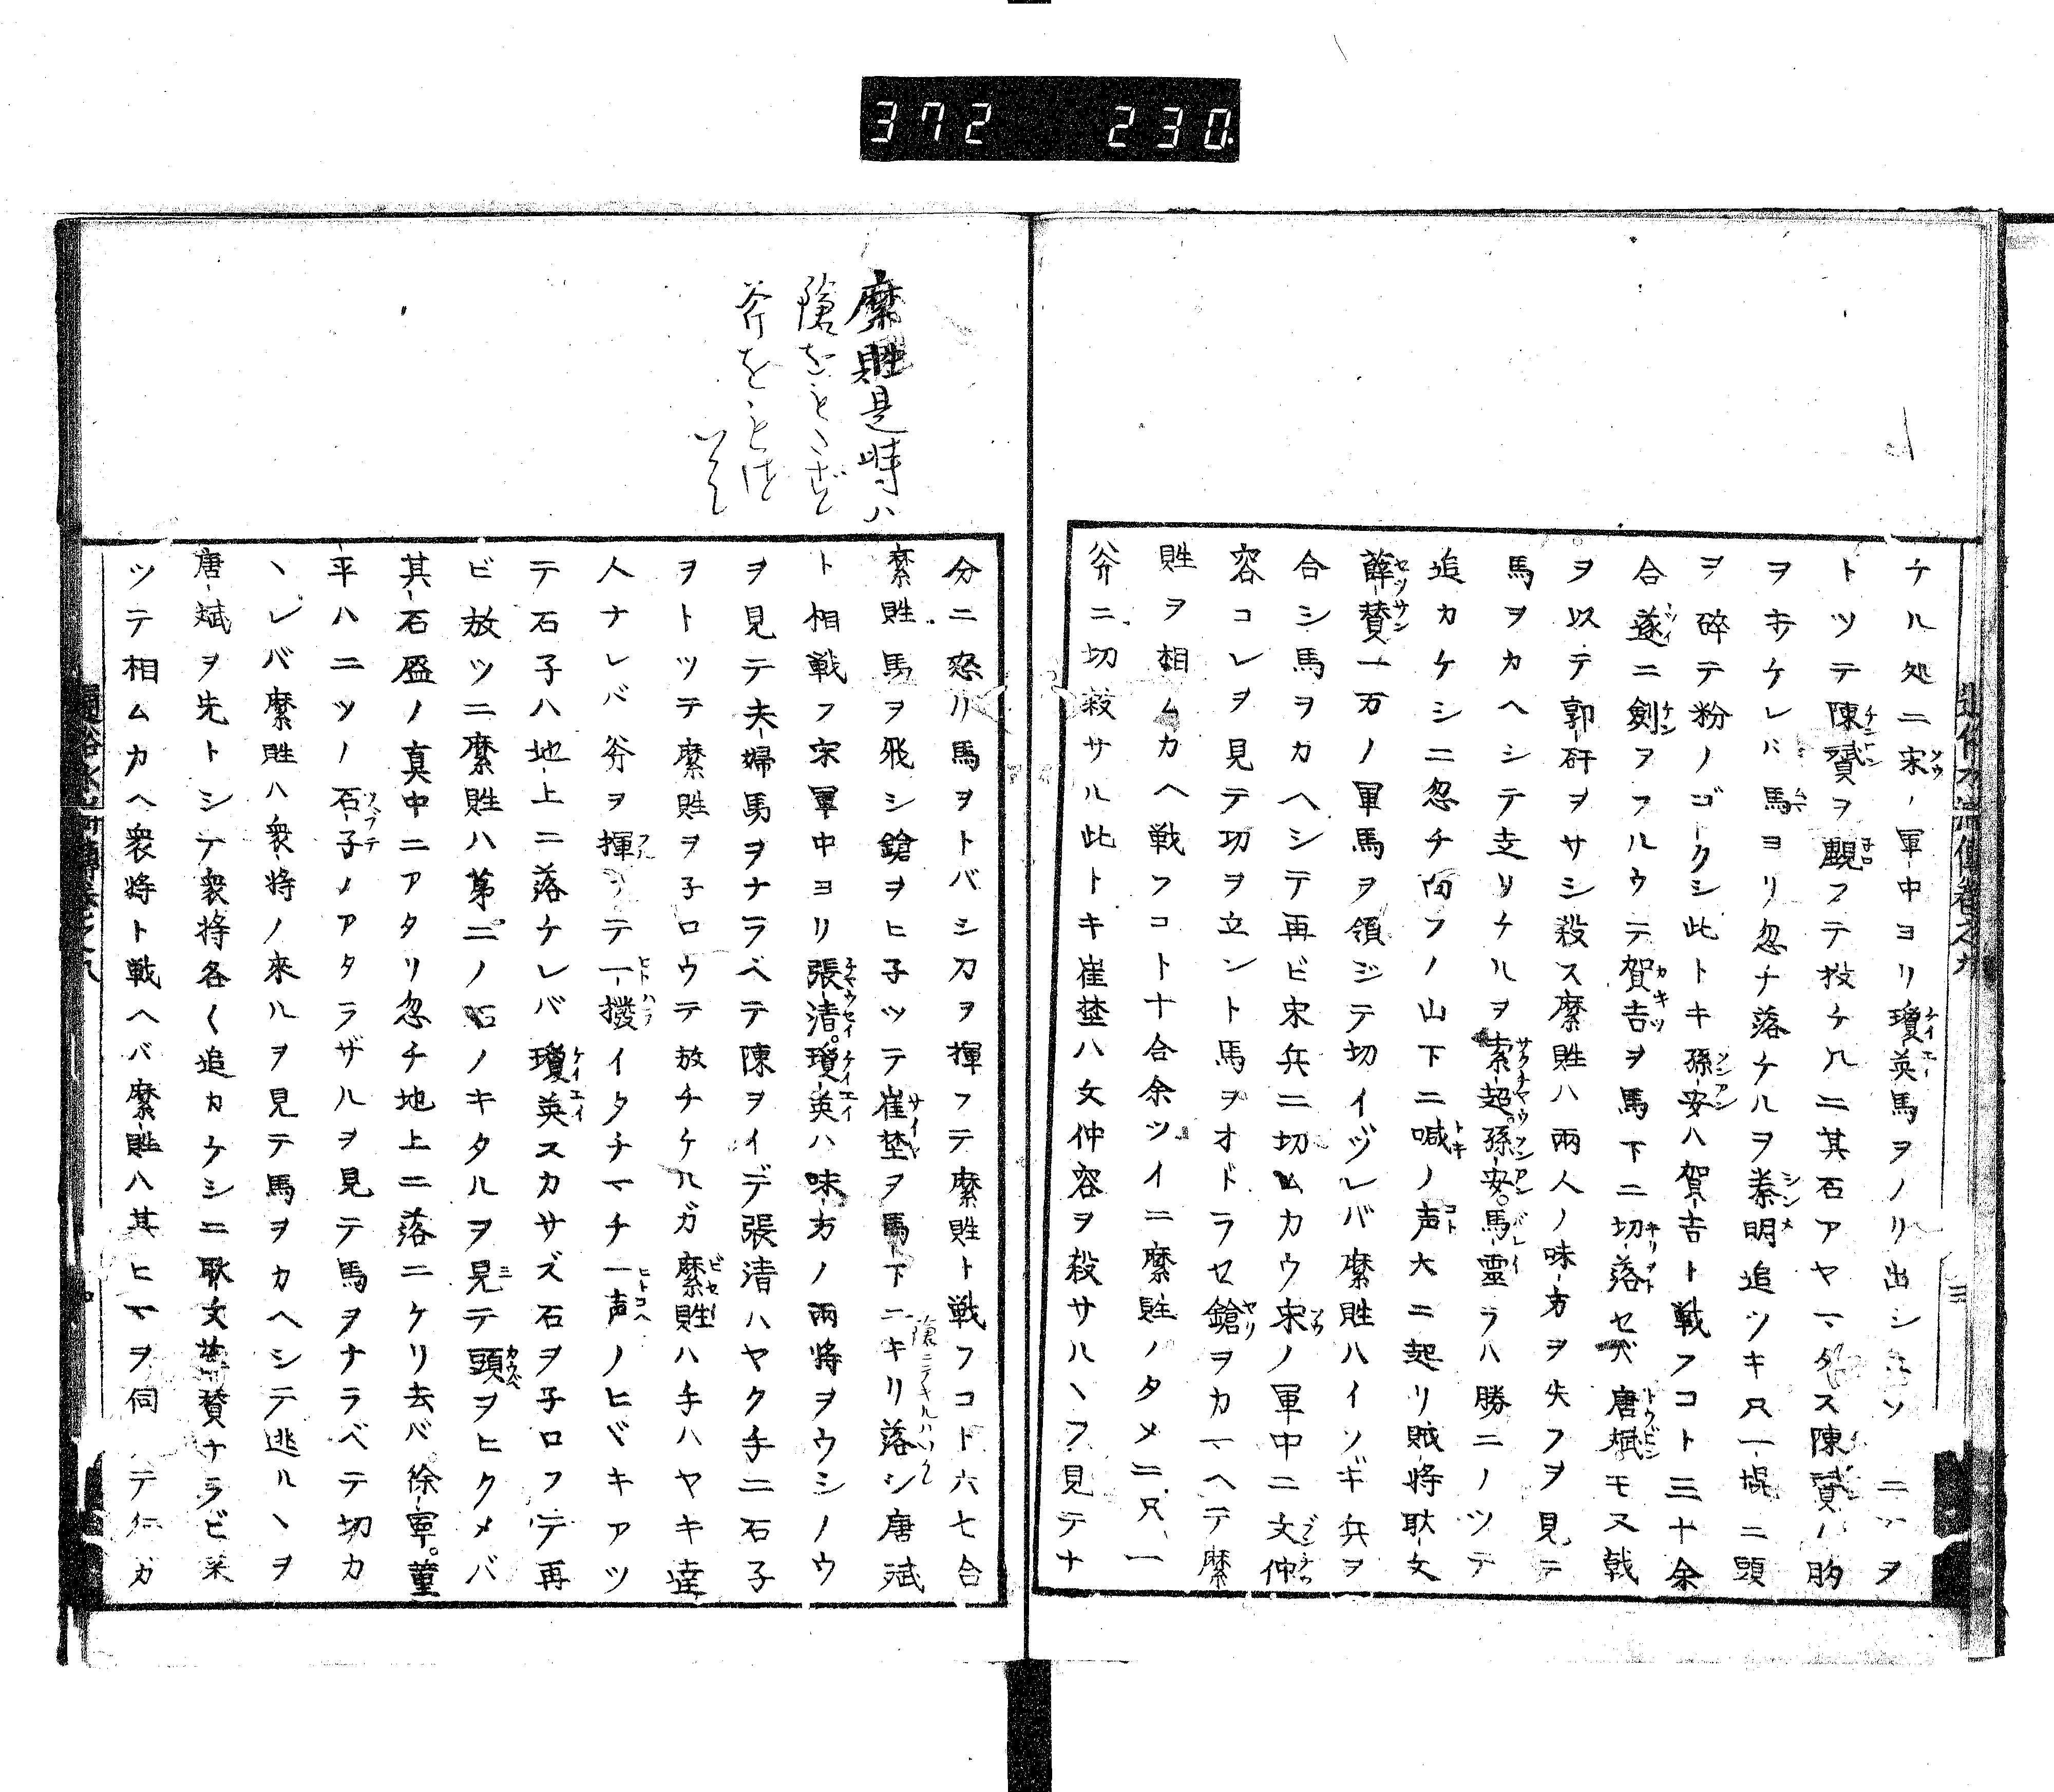 372 230
ケル処ニ宋ノ軍中ヨリ瓊英馬ヲノリ出シ
トツテ陳贇ヲ覷フテ投ケルニ其石アヤマタス陳贇ノ胸
ヲ打ケレバ馬ヨリ忽チ落チルヲ秦明追ツキ只一棍ニ頭
ヲ碎テ粉ノゴークシ此トキ孫安ハ賀吉ト戦フコト三十余
合遂ニ劍ヲフルウテ賀吉ヲ馬下ニ切落セバ唐斌モ又戟
ヲ以テ郭矸ヲサシ殺ス縻貹ハ兩人ノ味方ヲ失フヲ見テ
馬ヲカヘシテ走リケルヲ索超。孫安。馬靈ラハ勝ニノツテ
追カケシニ忽チ向フノ山下ニ喊ノ声大ニ起リ賊将耿文
薛賛一万ノ軍馬ヲ領ジテ切イヅレバ縻貹ハイソギ兵ヲ
合シ馬ヲカヘシテ再ビ宋兵ニ切ムカウ宋ノ軍中ニ文仲
容コレヲ見テ功ヲ立ント馬ヲオドラセ鎗ヲカマヘテ縻
貹ヲ相ムカヘ戦フコト十合余ツイニ縻貹ノタメニ只一
斧ニ切殺サル此トキ崔埜ハ文仲容ヲ殺サルヽフ見テナ
縻貹是時ハ
鎗をもたず
斧をもち
分ニ怒リ馬ヲトバシ刀ヲ揮フテ縻貹ト戦フコト六七合
縻貹馬ヲ飛シ鎗ヲヒ子ツテ崔埜ヲ馬下ニキリ落シ唐斌
ト相戦フ宋軍中ヨリ張清。瓊英ハ味方ノ兩将ヲウシノウ
ヲ見テ夫婦馬ヲナラベテ陳ヲイデ張清ハヤク手ニ石子
ヲトツテ縻貹ヲ子ロウテ放チケルガ縻貹ハ手ハヤキ達
人ナレバ斧ヲ揮ヲテ一撥イタチマチ一声ノヒヾキアツ
テ石子ハ地上ニ落ケレバ瓊英スカサズ石ヲ子ロフテ再
ビ放ツニ縻貹ハ第二ノ石ノキタルヲ見テ頭ヲヒクメバ
其石盔ノ真中ニアタリ忽チ地上ニ落ニケリ去バ徐寧。董
平ハ二ツノ石子ノアタラザルヲ見テ馬ヲナラベテ切カ
ヽレバ縻貹ハ衆将ノ來ルヲ見テ馬ヲカヘシテ逃ルヽヲ
唐斌ヲ先トシテ衆将各〱追カケシニ耿文薛賛ナラビ来
ツテ相ムカヘ衆将ト戦ヘバ縻貹ハ其ヒマヲ伺